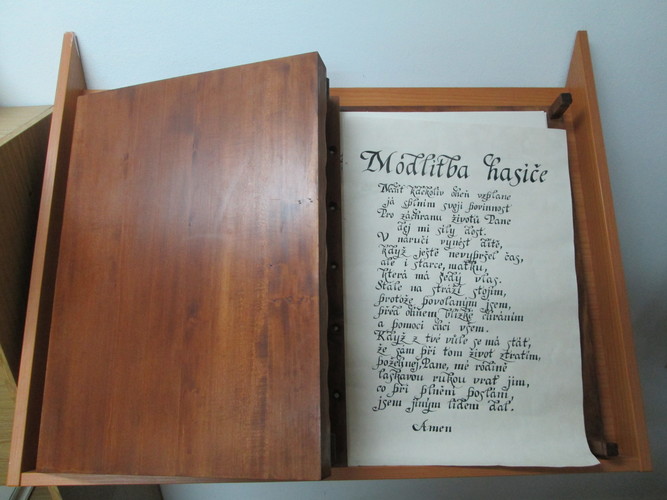 Modlitba hasiče
kdekoliv oheň vzplane
já splním svoji povinnost
Pro záchranu životů Pane
dej mi síly dost.
V náručí vynést dítě,
když ještě nevypršel čas,
ale i starce, matku,
která má šedý vlas.
Stále na stráži stojím,
protože povolaným jsem,
před ohněm blízké chráním
a pomoci chci všem.
Když z tvé vůle se má stát,
že sám při tom život ztratím,
požehnej, Pane, mé rodině
laskavou rukou vrať jim,
co při plnění poslání,
jsem jiným lidem dal.
Amen